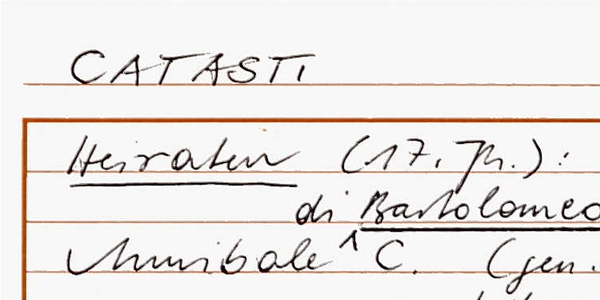 CATASTI
Heiraten (17. Jh.):
di Bartolomeo
Annibale C. (gen.